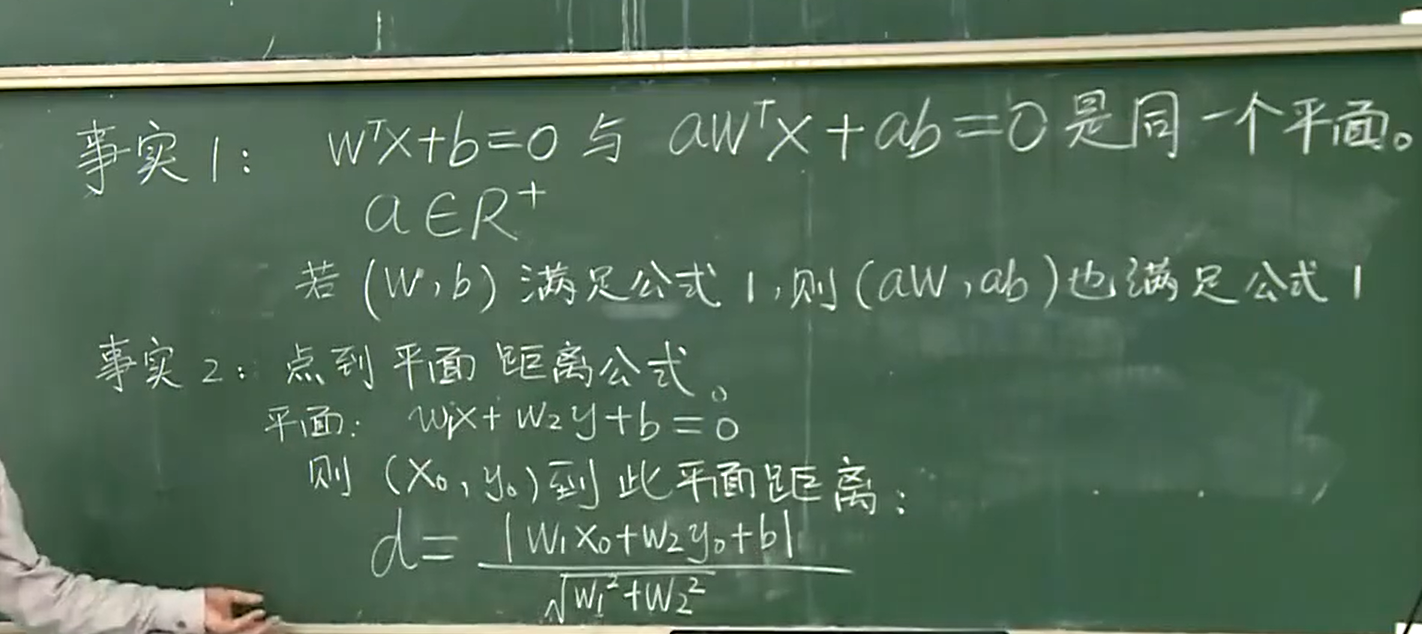 事实1: wᵀx+b=0 与 awᵀx+ab=0 是同一个平面。
a∈R⁺
若(w,b)满足公式1,则(aw,ab)也满足公式1
事实2: 点到平面距离公式。
平面: w₁x+w₂y+b=0
则(x₀,y₀)到此平面距离:
d= |w₁x₀+w₂y₀+b|
√w₁²+w₂²